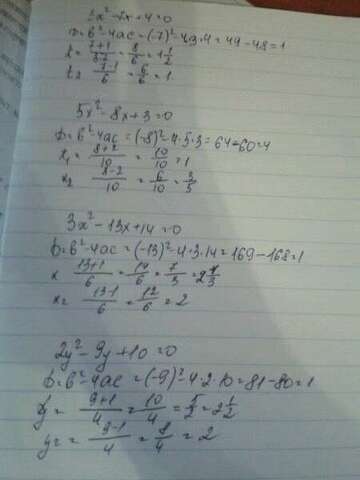 3x² - 7x + 4 = 0
D = b² - 4ac = (-7)² - 4·3·4 = 49 - 48 = 1
x = 7+1/3·2 = 8/6 = 1 1/2
x₂ = 7-1/6 = 6/6 = 1
5x² - 8x + 3 = 0
D = b² - 4ac = (-8)² - 4·5·3 = 64 - 60 = 4
x₁ = 8+2/10 = 10/10 = 1
x₂ 8-2/10 = 6/10 = 3/5
3x² - 13x + 14 = 0
D = b² - 4ac = (-13)² - 4·3·14 = 169 - 168 = 1
x 13+1/6 = 14/6 = 7/3 = 2 1/3
x₂ = 13-1/6 = 12/6 = 2
2y² - 9y + 10 = 0
D = b² - 4ac = (-9)² - 4·2·10 = 81 - 80 = 1
y = 9+1/4 = 10/4 = 5/2 = 2 1/2
y₂ = 9-1/4 = 8/4 = 2